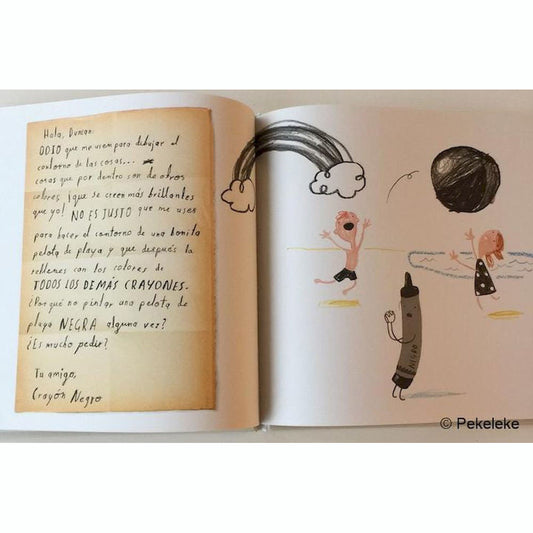 Hola, Duncan:
ODIO que me uses para dibujar el
contorno de las cosas...
cosas que por dentro son de otros
colores, ¡que se creen más brillantes
que yo! NO ES JUSTO que me uses
para hacer el contorno de una bonita
pelota de playa y que después la
rellenes con los colores de
TODOS LOS DEMÁS CRAYONES.
¿Por qué no pintar una pelota de
playa NEGRA alguna vez?
¿Es mucho pedir?
Tu amigo,
Crayón Negro
NEGRO
© Pekeleke